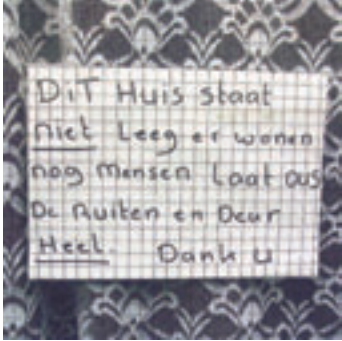 DiT Huis staat
niet Leeg er wonen
nog mensen Laat dus
De Ruiten en Deur
Heel. Dank u